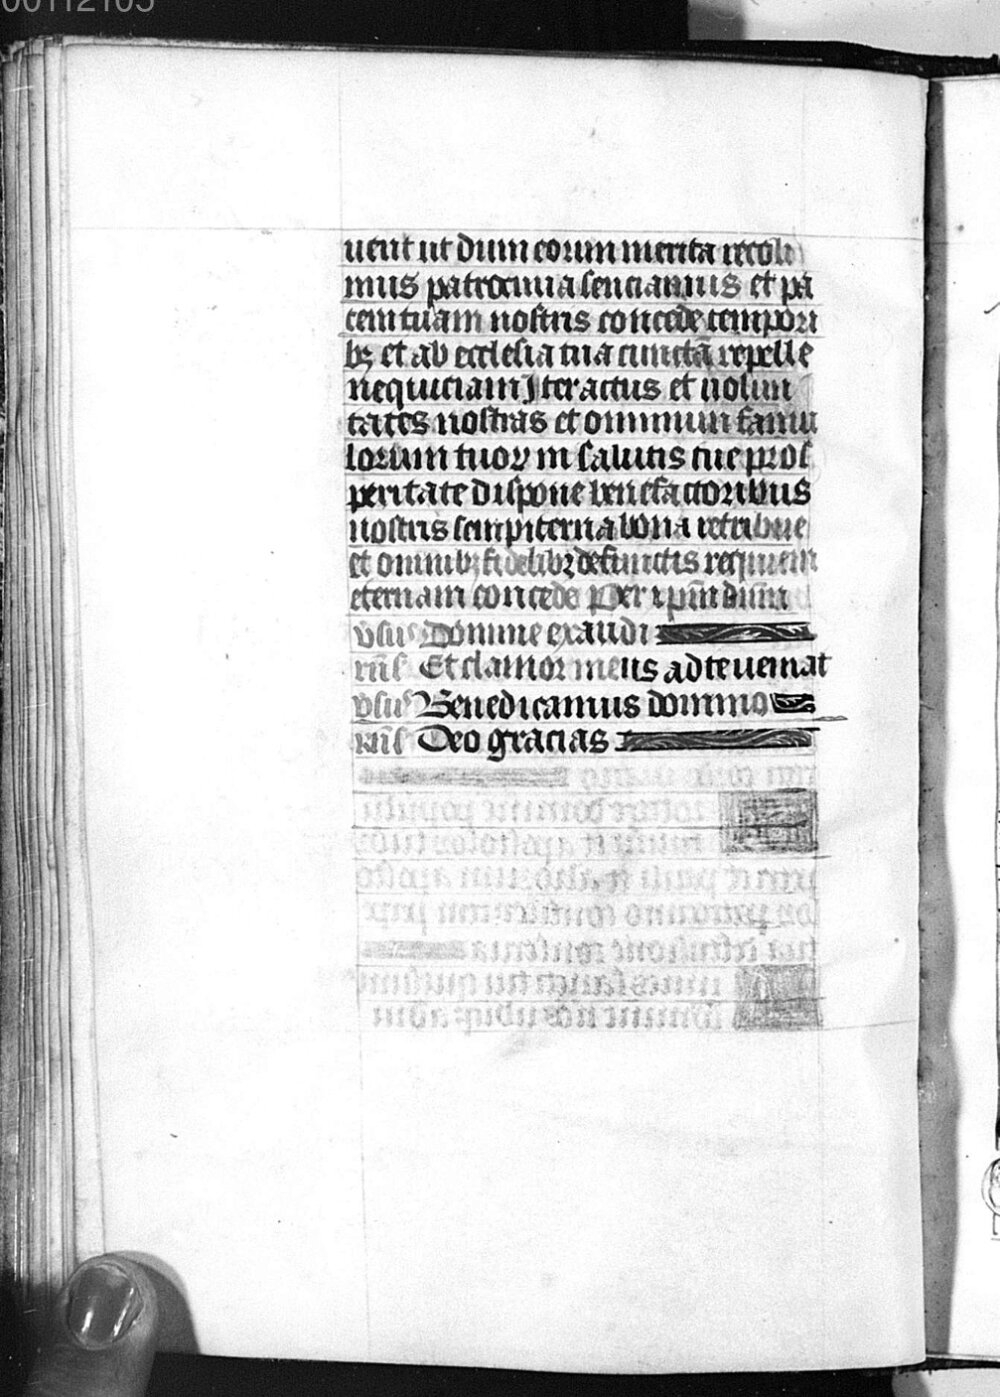 00112105
uent ut dum eorum merita recolo
mus patrocinia senciamus et pa
cem tuam nostris concede tempori
bꝫ et ab ecclesia tua cunctā repelle
nequiciam Iter actus et uolun
tates nostras et omnium famu
lorum tuoꝝ in salutis tue pros
peritate dispone benefactoribus
nostris sempiterna bona retribue
et omnibꝫ fidelibꝫ defunctis requiem
eternam concede Per ipm̄ dn̄m
v̄sus Domine exaudi
rn̄s Et clamor meus ad te ueniat
v̄sus Benedicamus domino
rn̄s Deo gracias